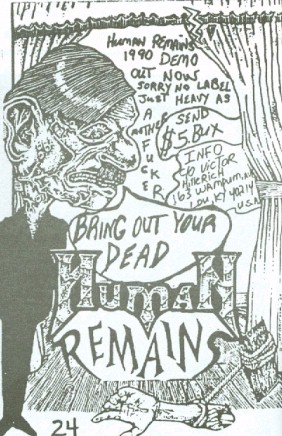 HUMAN REMAINS
1990 DEMO
OUT NOW
SORRY NO LABEL
JUST HEAVY AS
A
MOTHER
FUCKER
SEND
$5.BUX
INFO
C/O VICTOR
HILLERICH
163 WAMPUM AV
LOU, KY 40214
U.S.A
BRING OUT YOUR
DEAD
HUMAN
REMAINS
24